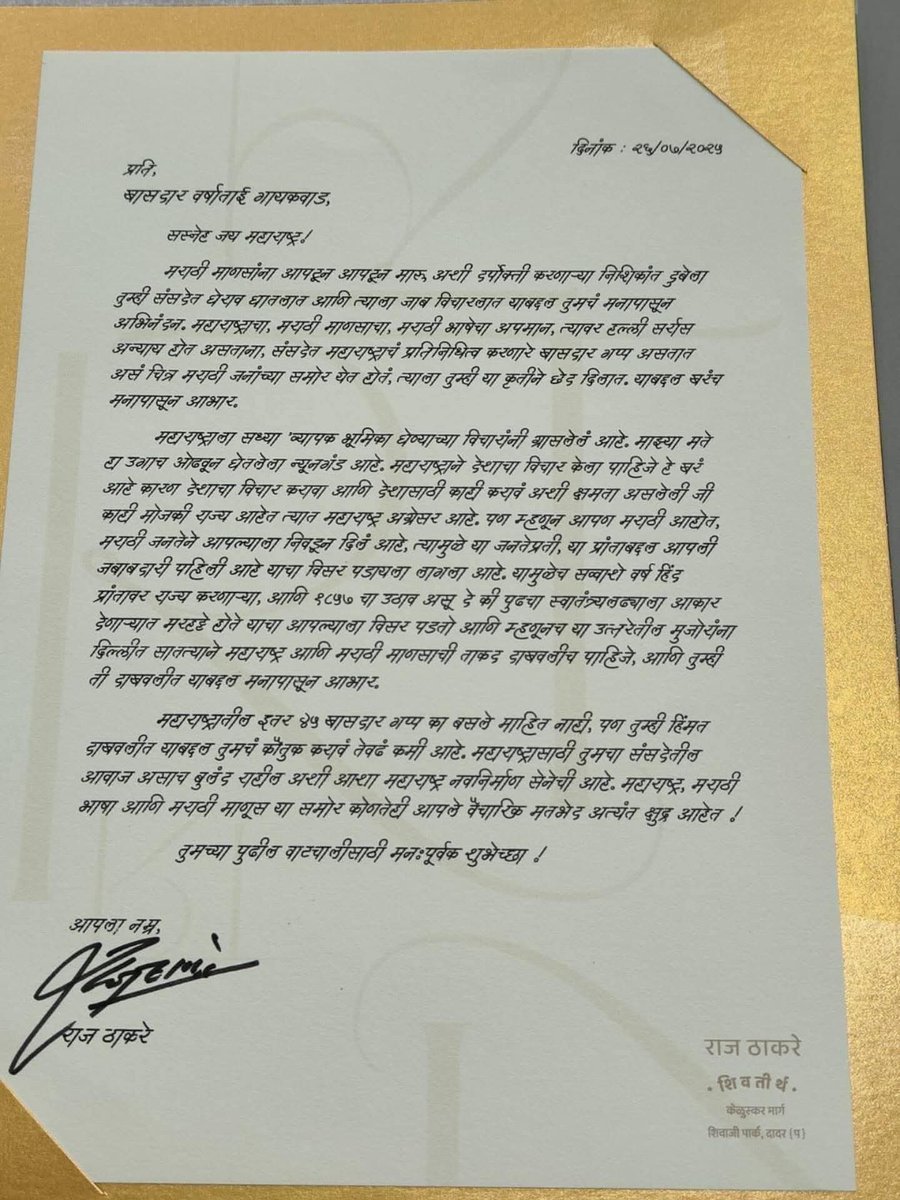 दिनांक : २६/०७/२०२५
प्रति,
खासदार वर्षाताई गायकवाड,
सस्नेह जय महाराष्ट्र!
मराठी माणसांना आपटून आपटून मारू, अशी दर्पोक्ती करणाऱ्या निशिकांत दुबेला
तुम्ही संसदेत घेराव घातलात आणि त्याला जाब विचारलात याबद्दल तुमचं मनापासून
अभिनंदन. महाराष्ट्राचा, मराठी माणसाचा, मराठी भाषेचा अपमान, त्यावर हल्ली सर्रास
अन्याय होत असताना, संसदेत महाराष्ट्राचं प्रतिनिधित्व करणारे खासदार गप्प असतात
असं चित्र मराठी जनांच्या समोर येत होतं, त्याला तुम्ही या कृतीने छेद दिलात. याबद्दल खरंच
मनापासून आभार.
महाराष्ट्राला सध्या 'व्यापक भूमिका घेण्याच्या विचारांनी ग्रासलेलं आहे. माझ्या मते
हा उगाच ओढवून घेतलेला न्यूनगंड आहे. महाराष्ट्राने देशाचा विचार केला पाहिजे हे खरं
आहे कारण देशाचा विचार करावा आणि देशासाठी काही करावं अशी क्षमता असलेली जी
काही मोजकी राज्य आहेत त्यात महाराष्ट्र अग्रेसर आहे. पण म्हणून आपण मराठी आहोत,
मराठी जनतेने आपल्याला निवडून दिलं आहे, त्यामुळे या जनतेप्रती, या प्रांताबद्दल आपली
जबाबदारी पहिली आहे याचा विसर पडायला लागला आहे. यामुळेच सव्वाशे वर्ष हिंद
प्रांतावर राज्य करणाऱ्या, आणि १८५७ चा उठाव असू दे की पुढचा स्वातंत्र्यलढ्याला आकार
देणाऱ्यात मरहट्टे होते याचा आपल्याला विसर पडतो आणि म्हणूनच या उत्तरेतील मुजोरांना
दिल्लीत सातत्याने महाराष्ट्र आणि मराठी माणसाची ताकद दाखवलीच पाहिजे, आणि तुम्ही
ती दाखवलीत याबद्दल मनापासून आभार.
महाराष्ट्रातील इतर ४५ खासदार गप्प का बसले माहित नाही, पण तुम्ही हिंमत
दाखवलीत याबद्दल तुमचं कौतुक करावं तेवढं कमी आहे. महाराष्ट्रासाठी तुमचा संसदेतील
आवाज असाच बुलंद राहील अशी आशा महाराष्ट्र नवनिर्माण सेनेची आहे. महाराष्ट्र, मराठी
भाषा आणि मराठी माणूस या समोर कोणतेही आपले वैचारिक मतभेद अत्यंत क्षुद्र आहेत !
तुमच्या पुढील वाटचालीसाठी मनःपूर्वक शुभेच्छा !
आपला नम्र,
राज ठाकरे
राज ठाकरे
• शिवतीर्थ •
केळुस्कर मार्ग
शिवाजी पार्क, दादर (प)